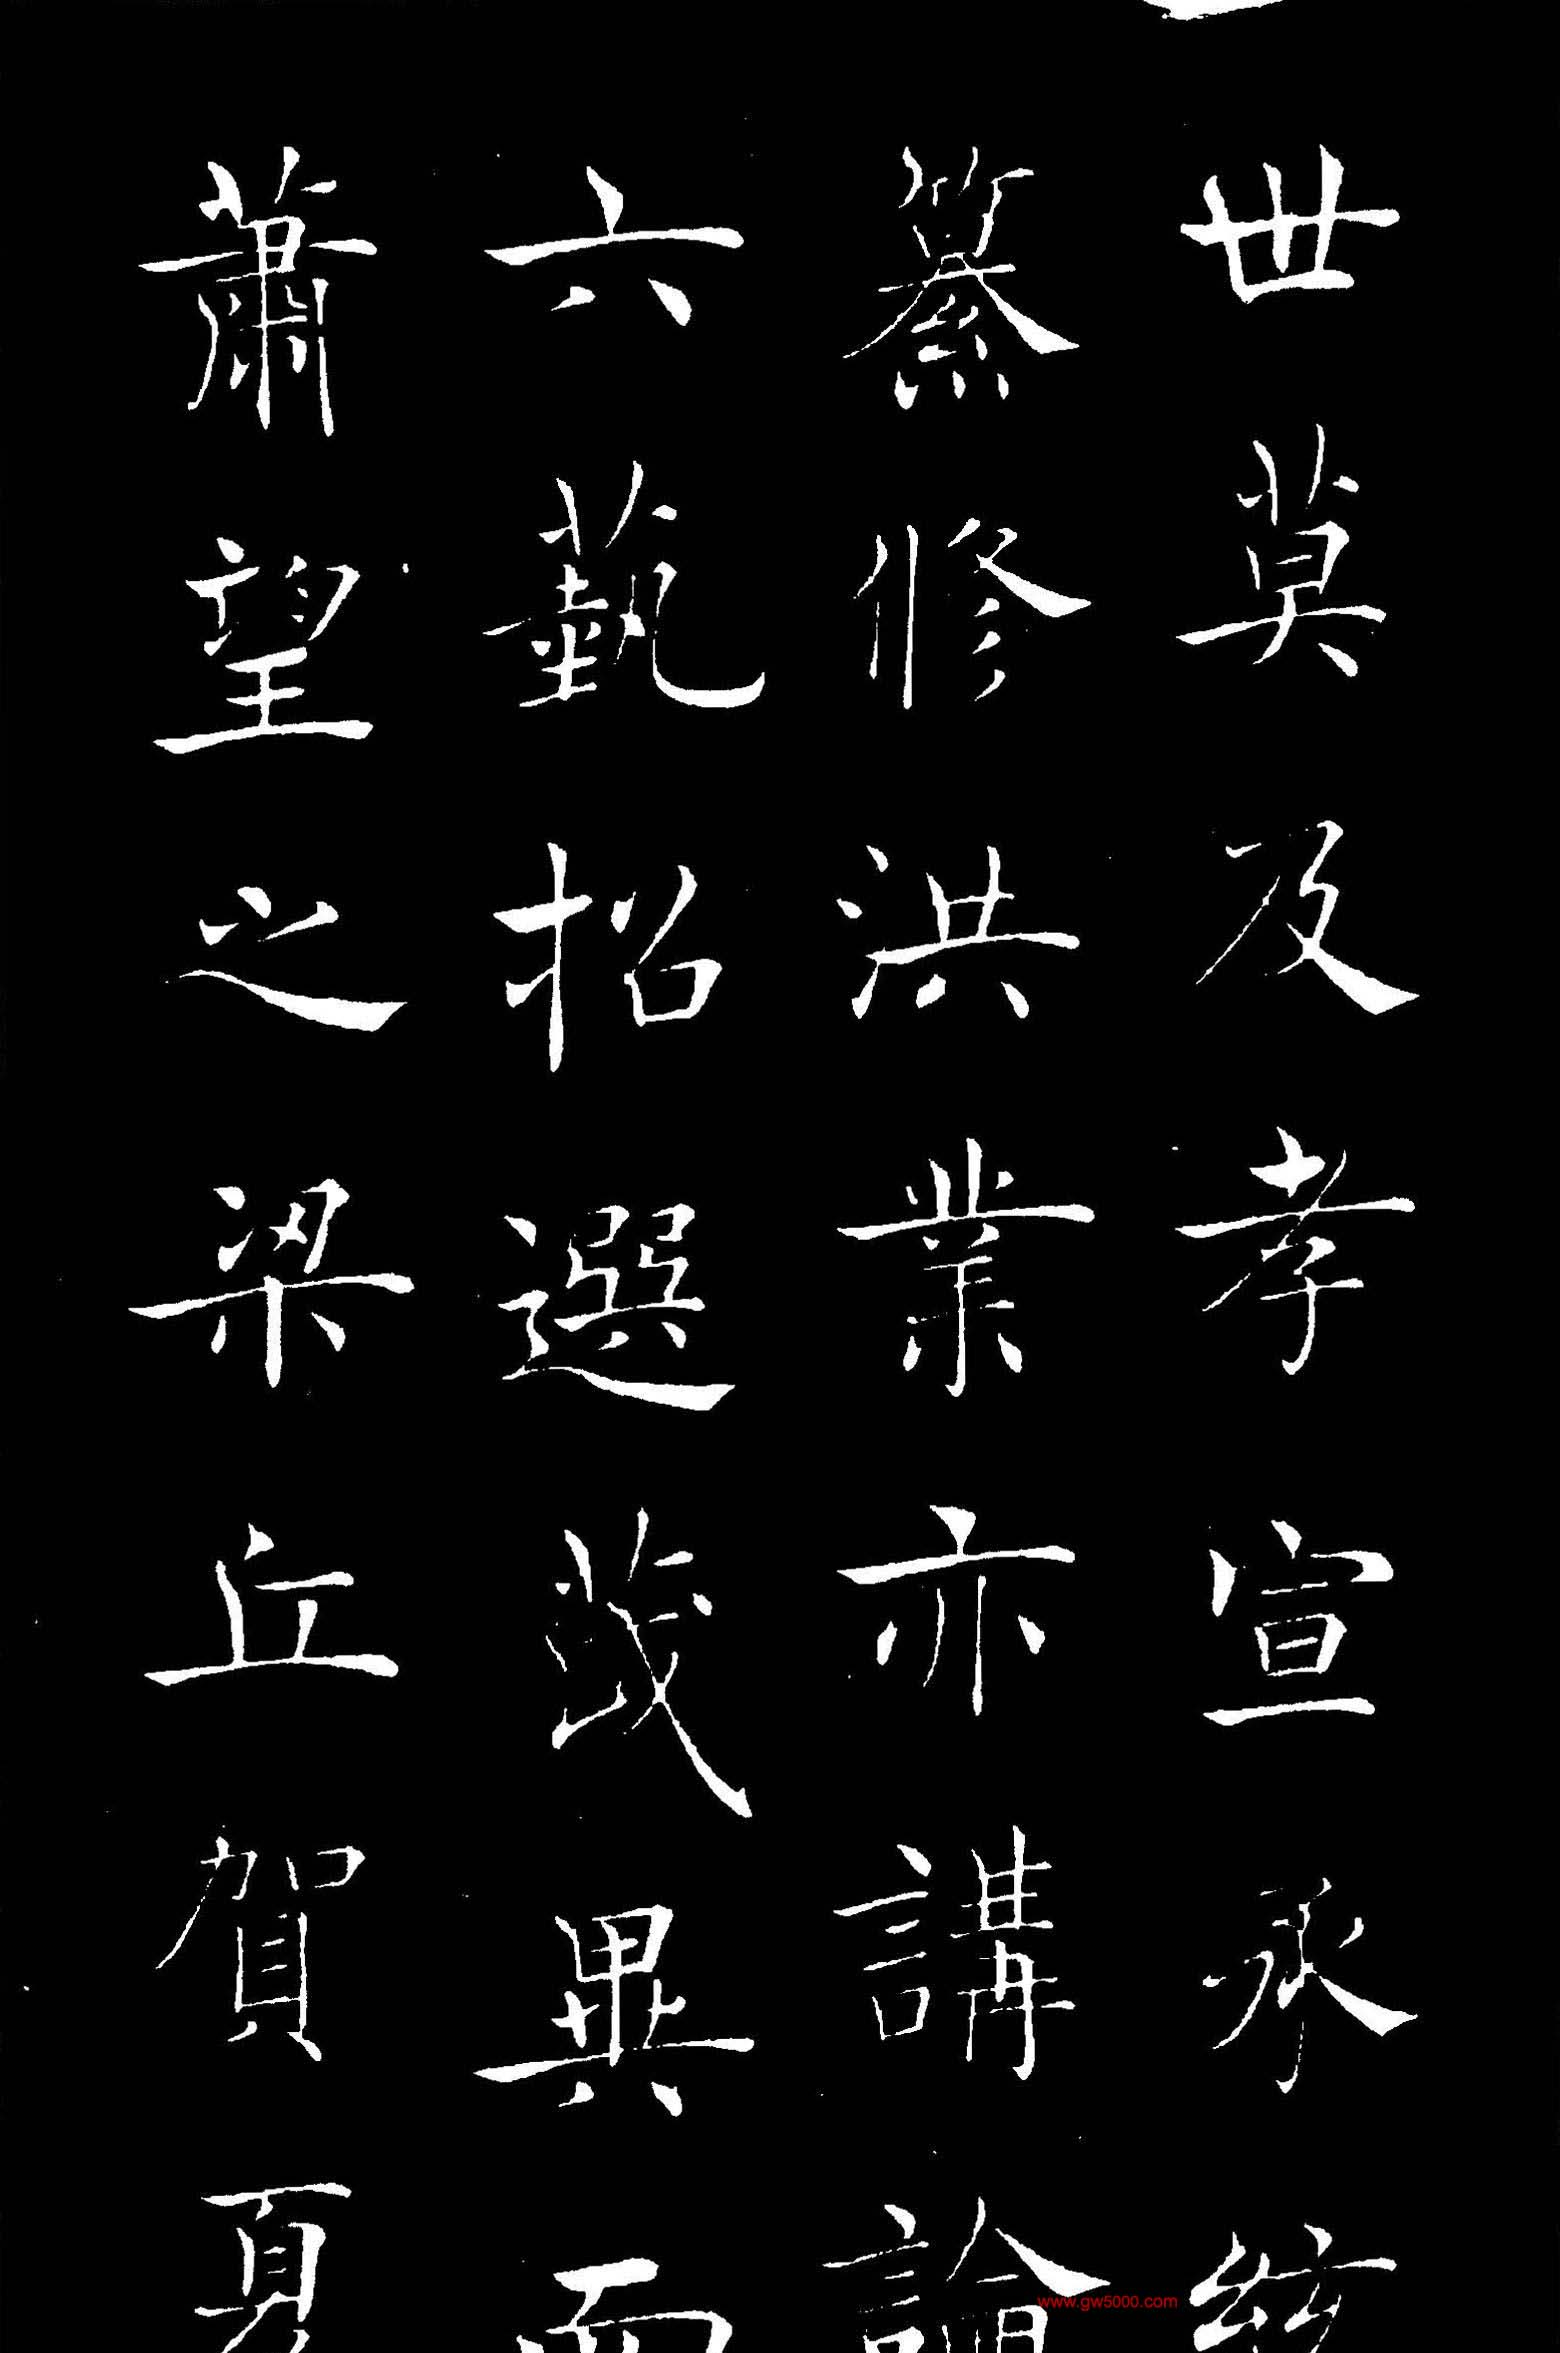 世莫及孝宣承統
纂修洪業亦講論
六藝招選茂異而
蕭望之梁丘賀夏
www.gw5000.com